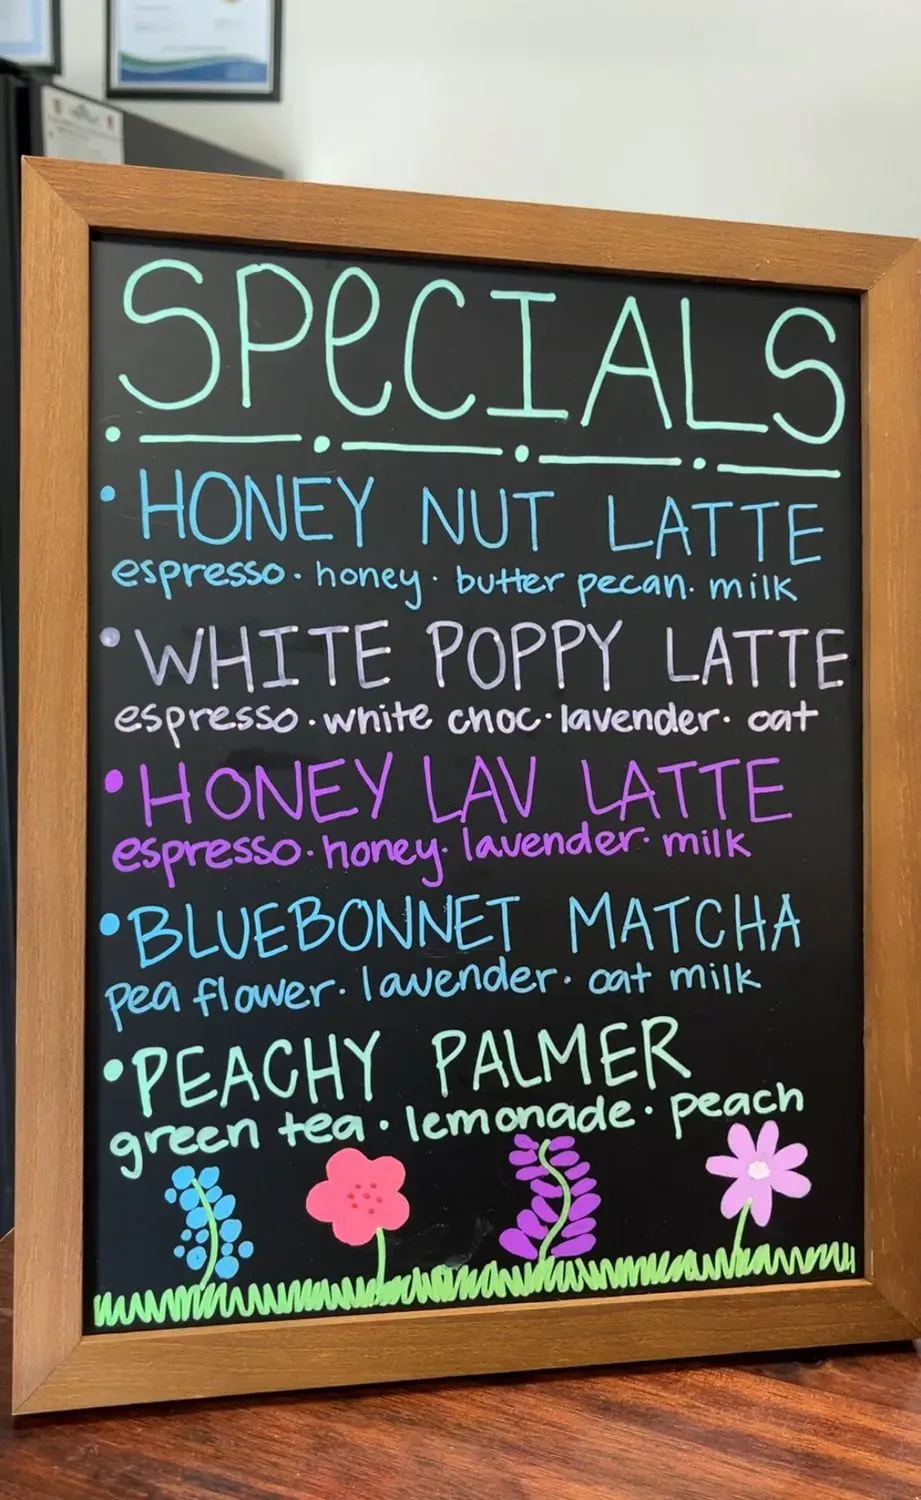 SPeCIALS
• HONEY NUT LATTE
espresso · honey · butter pecan · milk
• WHITE POPPY LATTE
espresso · white choc · lavender · oat
• HONEY LAV LATTE
espresso · honey · lavender · milk
• BLUEBONNET MATCHA
pea flower · lavender · oat milk
• PEACHY PALMER
green tea · lemonade · peach